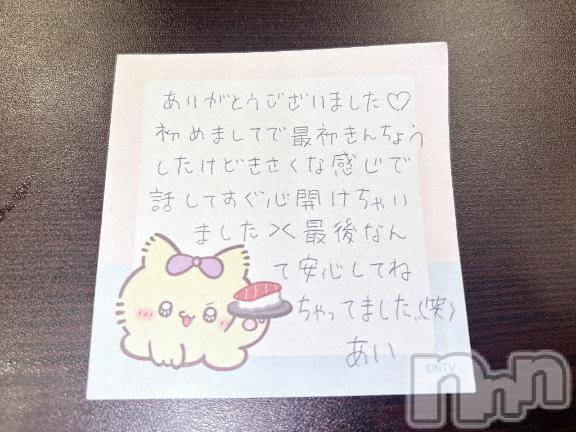 ありがとうございました♡
初めましてで最初きんちょう
したけどきさくな感じで
話してすぐ心開けちゃい
ました><最後なん
て安心してね
ちゃってました(笑)
あい
©NTV
nnn